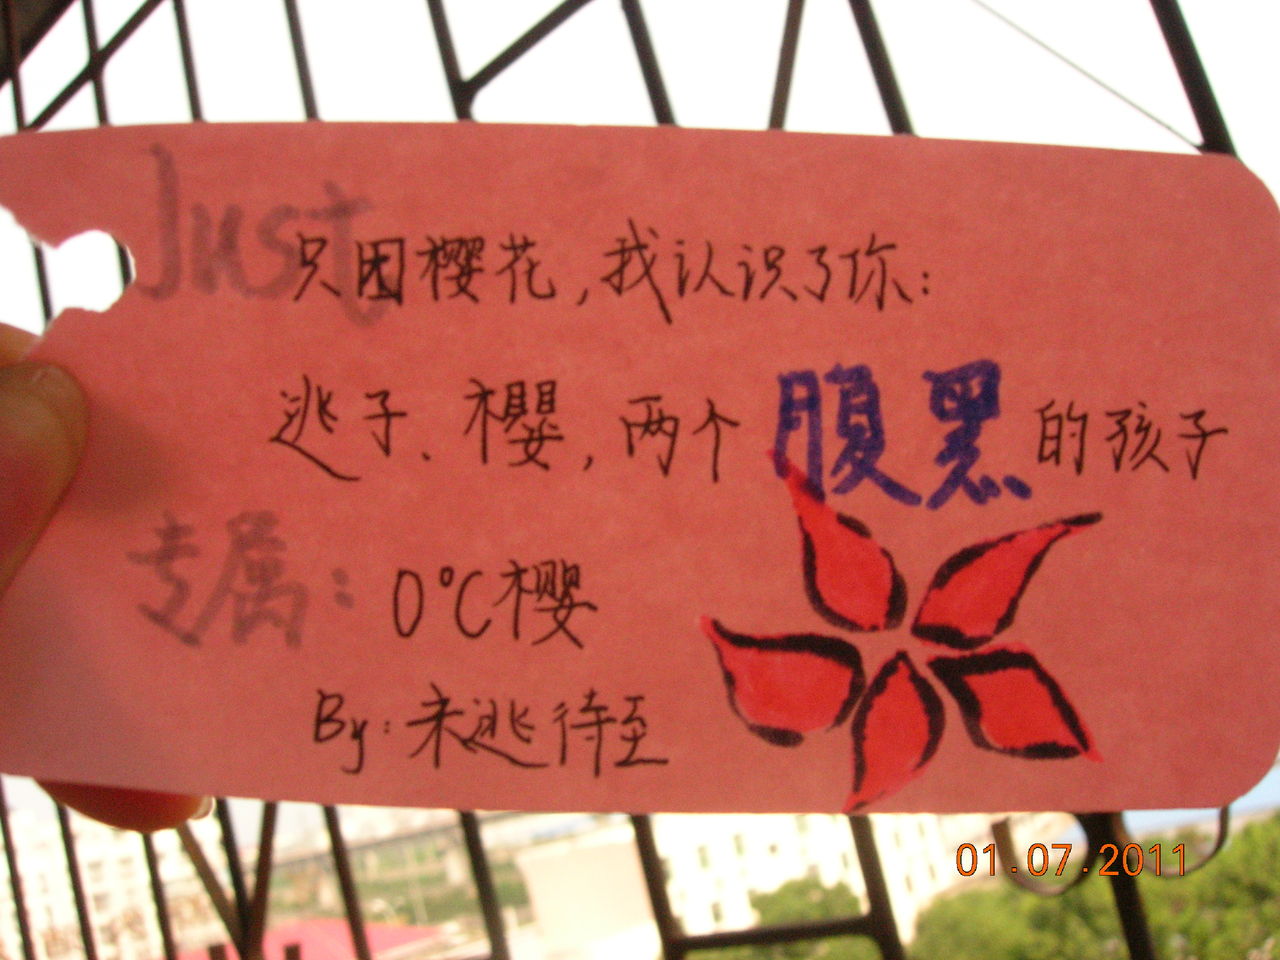 Just
只因樱花，我认识了你：
逃子、樱，两个腹黑的孩子
专属：0℃樱
By：未逃待至
01.07.2011